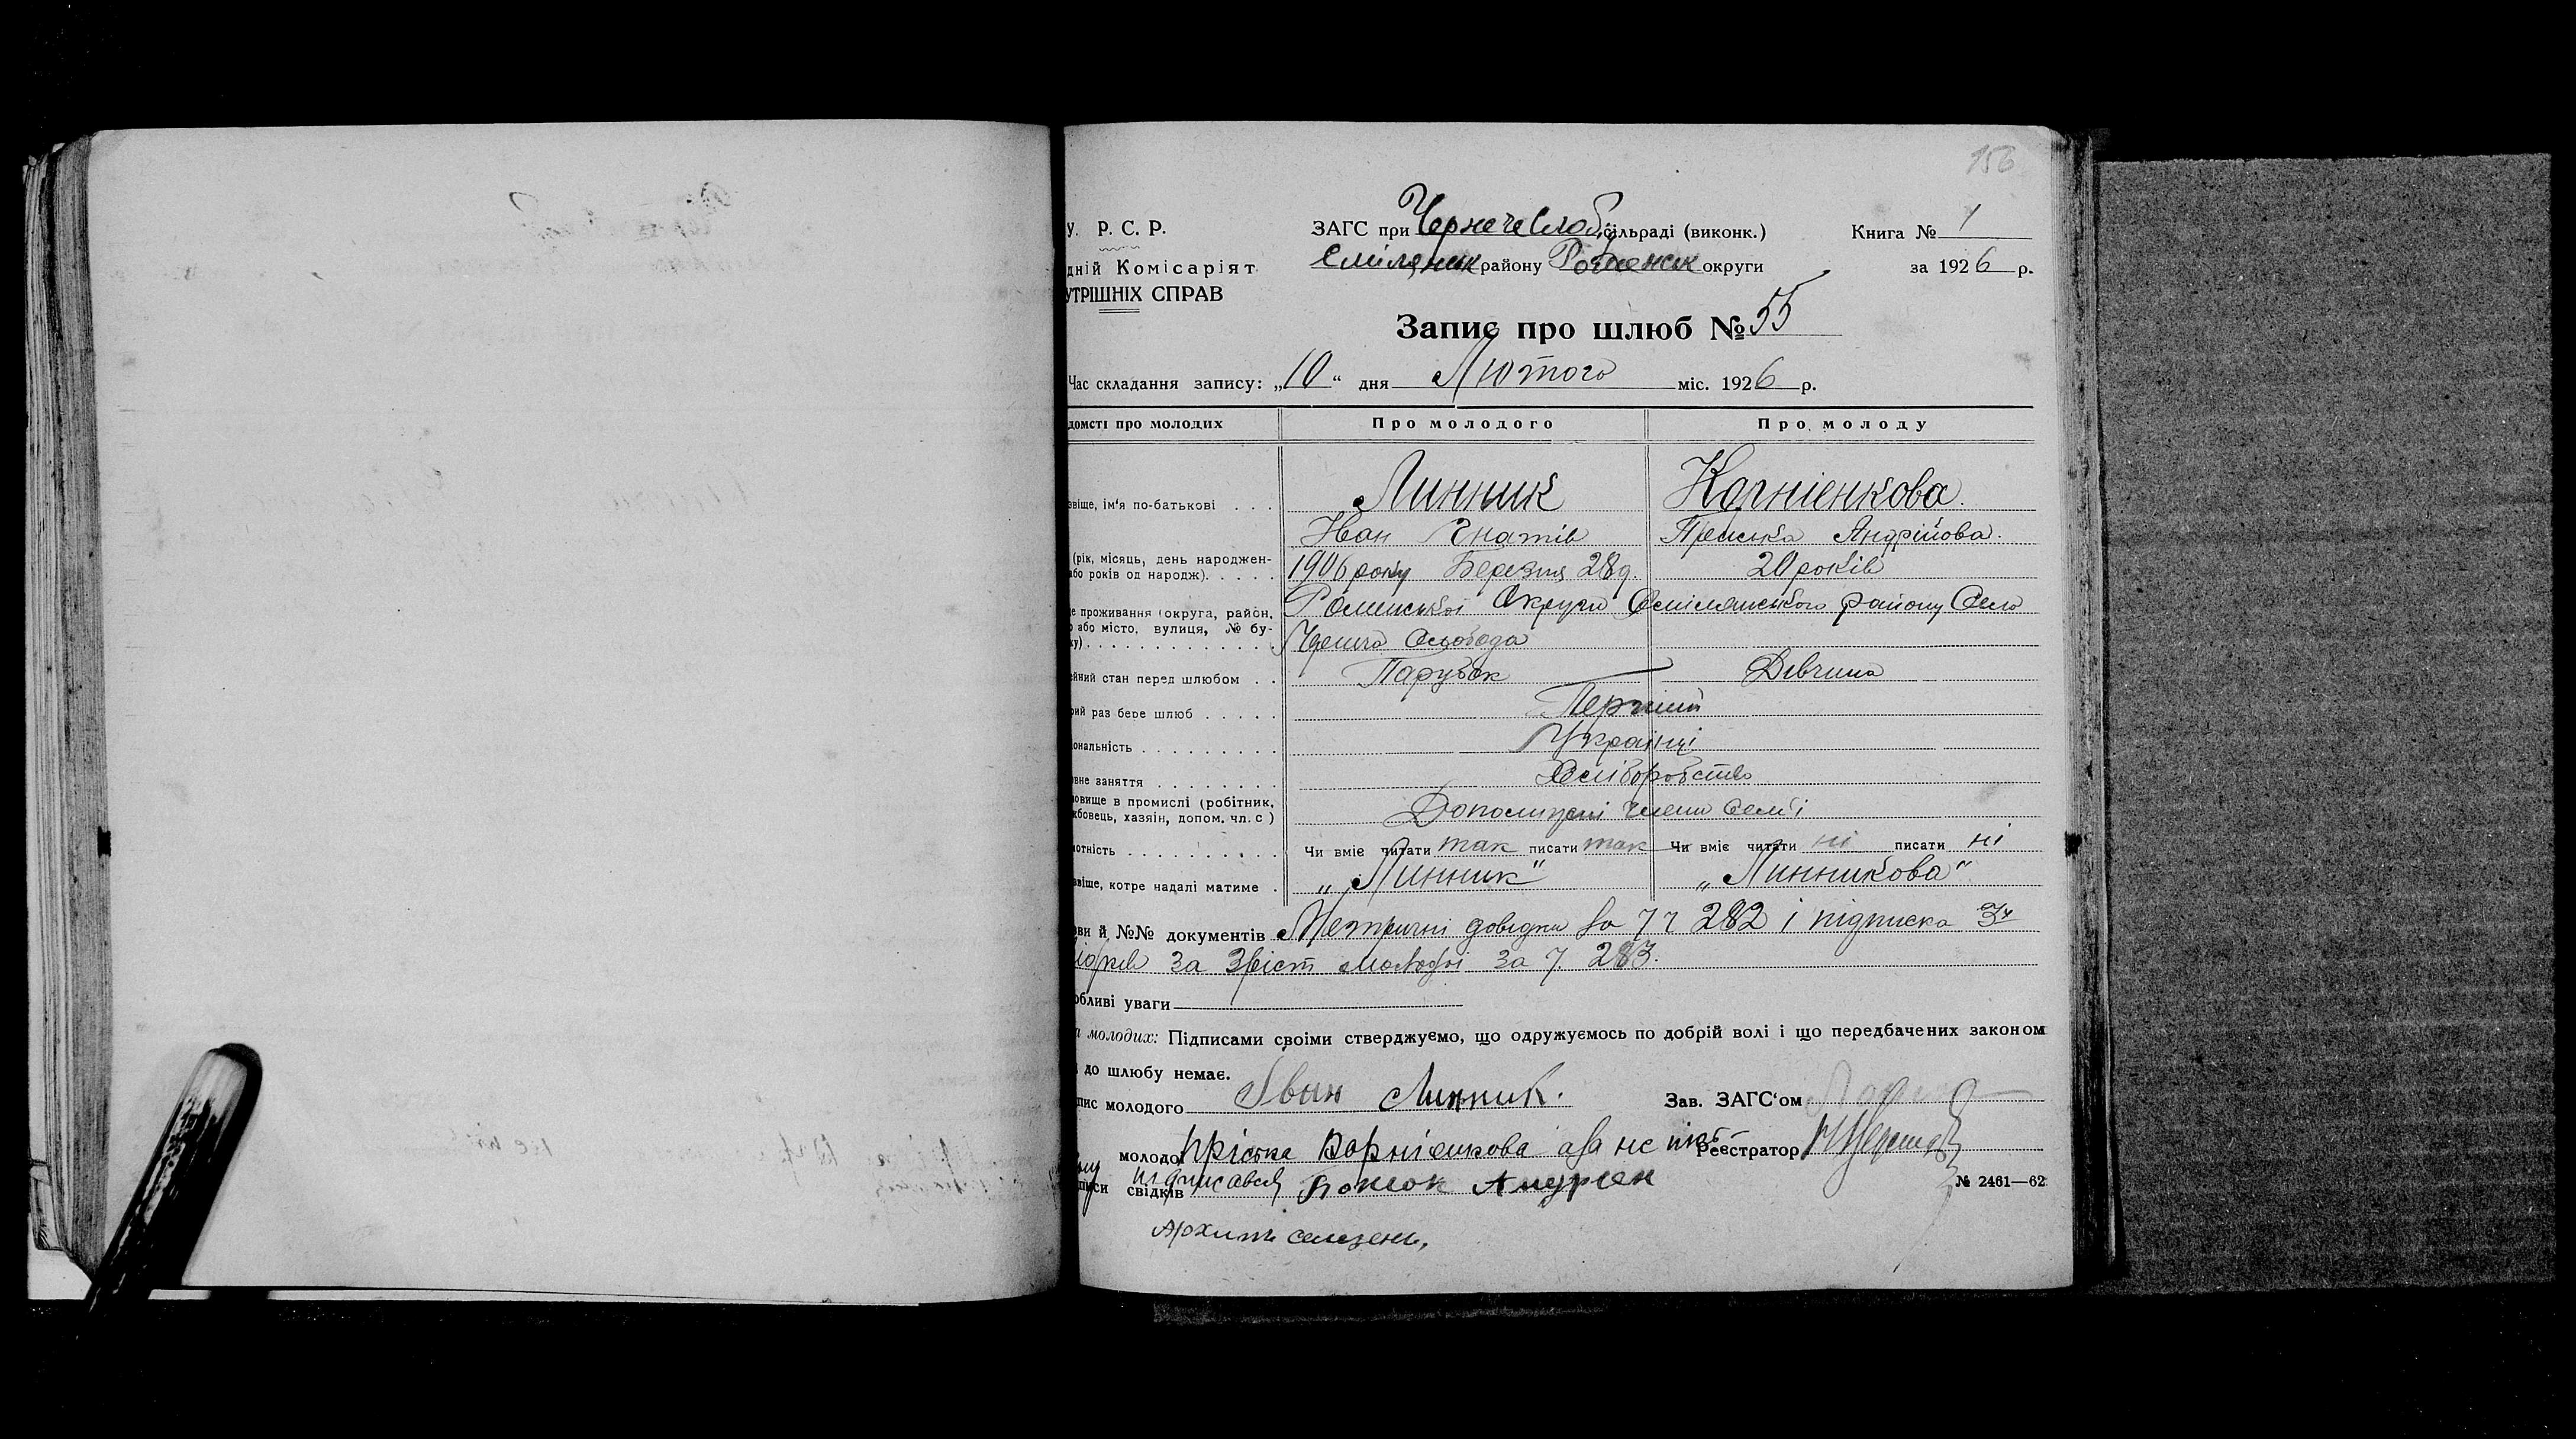 156
У. Р. С. Р. ЗАГС при Чернече Слоб. сільраді (виконк.) Книга № 1
дній Комісаріят Смілянськ району Роменськ округи за 1926 р.
УТРІШНІХ СПРАВ
Запис про шлюб № 55
Час складання запису: „10“ дня Лютого міс. 1926 р.
домсті про молодих Про молодого Про молоду
звіще, ім'я по-батькові . . . Линник Корнієнкова.
Іван Гнатів Пріська Андрійова.
(рік, місяць, день народжен- 1906 року Березня 28 д. 20 років
або років од народж). . . . .
е проживання (округа, район, Роменської Округи Смілянського району Село
о або місто, вулиця, № бу- Чернеча Слобода
ку) . . . . . . . . . . . . . .
ейний стан перед шлюбом . . Парубок Дівчина
рий раз бере шлюб . . . . . Перший
ональність . . . . . . . . . Українці
овне заняття . . . . . . . . Хліборобство
овище в промислі (робітник, Допомічні члени сем'ї
жбовець, хазяїн, допом. чл. с )
отність . . . . . . . . . . Чи вміє читати так писати так Чи вміє читати ні писати ні
звіще, котре надалі матиме . „Линник“ „Линникова“
ви й №№ документів Метричні довідки за 282 і підписка 3х
за молодої за 283.
обливі уваги
а молодих: Підписами своїми стверджуємо, що одружуємось по добрій волі і що передбачених законом
до шлюбу немає.
пис молодого Іван Линник. Зав. ЗАГС‘ом
молодої Пріська Корнієнкова а за неї Реєстратор
писи свідків підписався Андрієн № 2461—62
Архип Селезень.